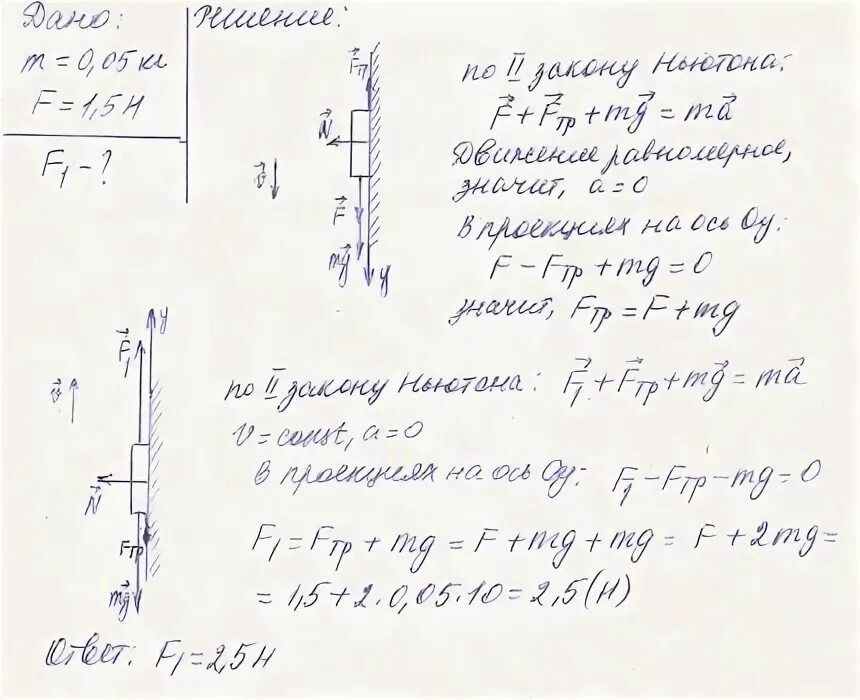 Дано:
m = 0,05 кг
F = 1,5 Н
F₁ - ?
Решение:
F⃗тр
N⃗
v⃗
F⃗
mg⃗
y
по II закону Ньютона:
F⃗ + F⃗тр + mg⃗ = ma⃗
Движение равномерное,
значит, a = 0
В проекциях на ось Oy:
F - Fтр + mg = 0
значит, Fтр = F + mg
y
F⃗₁
v⃗
N⃗
Fтр
mg⃗
по II закону Ньютона: F⃗₁ + F⃗тр + mg⃗ = ma⃗
v = const, a = 0
В проекциях на ось Oy: F₁ - Fтр - mg = 0
F₁ = Fтр + mg = F + mg + mg = F + 2mg =
= 1,5 + 2·0,05·10 = 2,5 (Н)
Ответ: F₁ = 2,5 Н